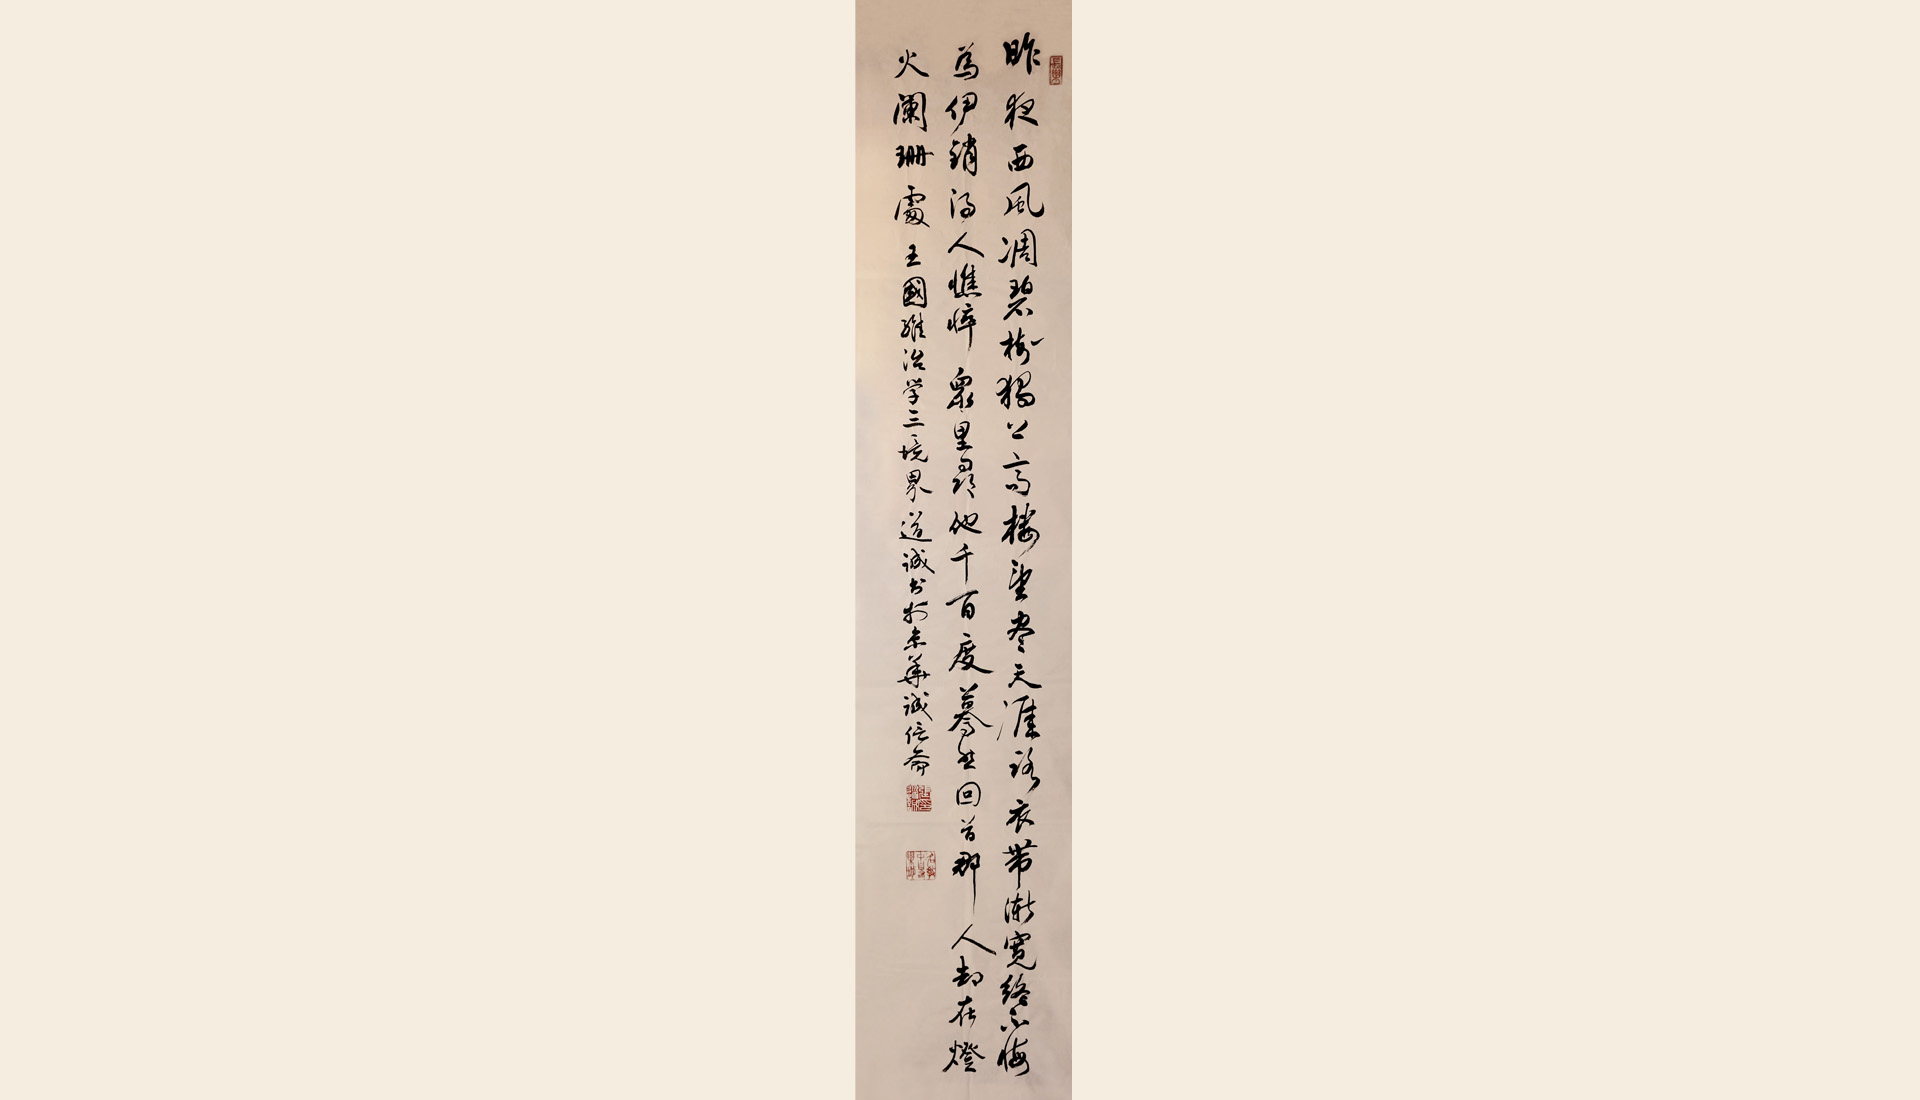 昨夜西風凋碧樹獨上高楼望尽天涯路衣帶漸寬終不悔
為伊銷得人憔悴衆里尋他千百度驀然回首那人却在燈
火闌珊處王國維治学三境界道誠书於京華誠信斋